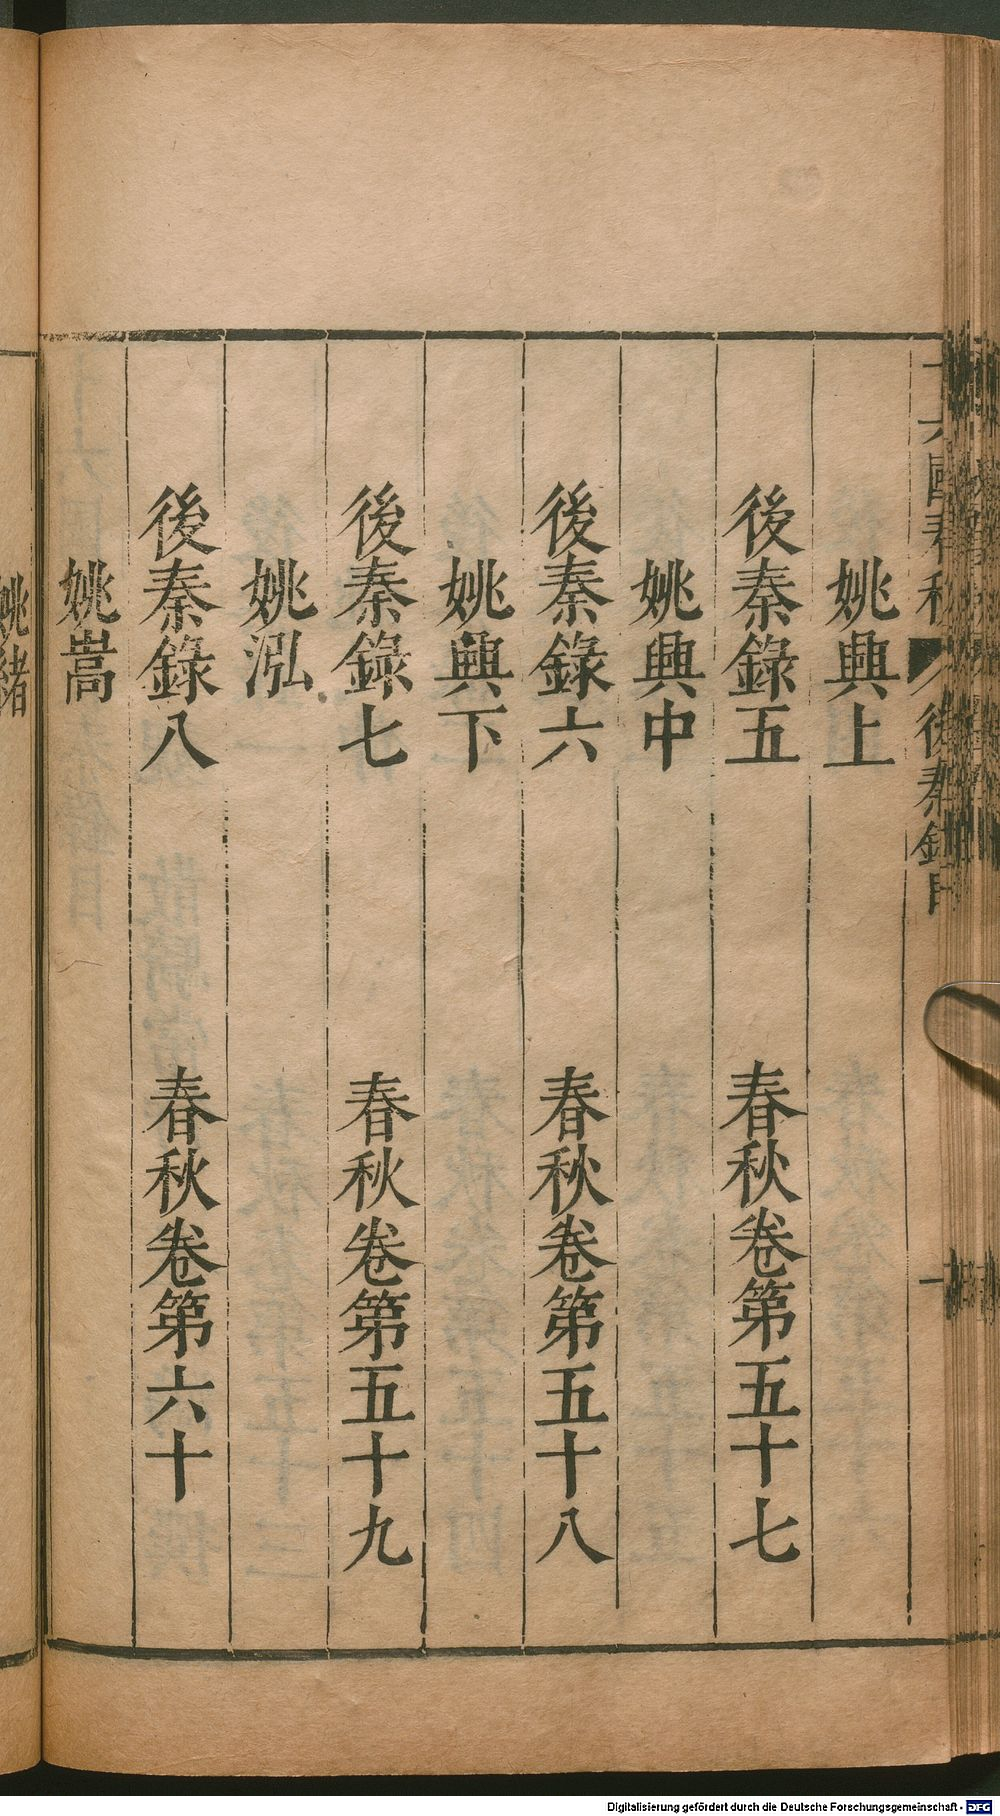 十六國春秋 後秦錄目 一
姚興上
後秦錄五 春秋卷第五十七
姚興中
後秦錄六 春秋卷第五十八
姚興下
後秦錄七 春秋卷第五十九
姚泓
後秦錄八 春秋卷第六十
姚嵩
姚緒
Digitalisierung gefördert durch die Deutsche Forschungsgemeinschaft - DFG